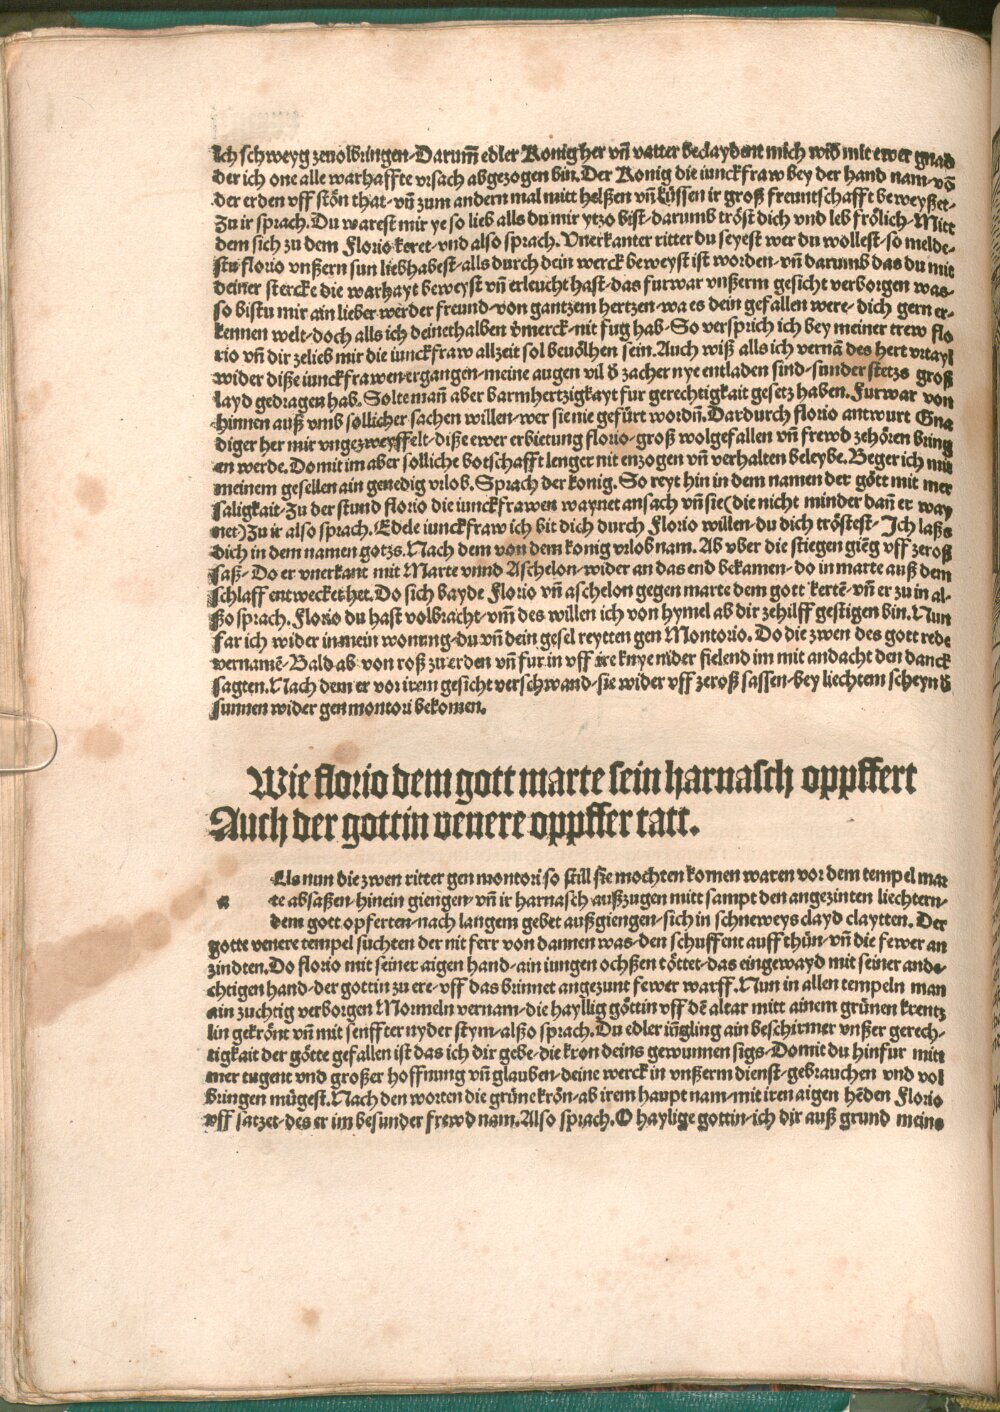 Ich schweyg zeuolbringen-Darum̃ edler Konig her vñ vatter beclaydent mich wid mit ewer gnad
der ich one alle warhaffte vrsach abgezogen bin. Der Konig die iunckfraw bey der hand nam-võ
der erden vff stõn that-vñ zum andern mal mitt helßen vñ küssen ir groß freuntschafft beweyßet-
Zu ir sprach. Du warest mir ye so lieb alls du mir ytzo bist-darumb tröst dich vnd leb frölich-Mitt
dem sich zu dem Florio keret-vnd also sprach. Vnerkanter ritter du seyest wer du wollest-so melde-
stu florio vnßern sun liebhabest-alls durch dein werck beweyst ist worden-vñ darumb das du mit
deiner stercke die warhayt beweyst vñ erleucht hast-das furwar vnßerm gesicht verborgen was-
so bistu mir ain lieber werder freund-von gantzem hertzen-wa es dein gefallen were-dich gern er-
kennen welt-doch alls ich deinethalben v̈merck-nit fug hab-So versprich ich bey meiner trew flo
rio vñ dir zelieb mir die iunckfraw allzeit sol beuölhen sein. Auch wiß alls ich vernã des hert vrtayl
wider diße iunckfrawen ergangen-meine augen vil d̈ zacher nye entladen sind-sunder stetzs groß
layd gedragen hab. Solte mañ aber barmhertzigkayt fur gerechtigkait gesetz haben. Furwar von
hinnen auß vmb söllicher sachen willen-wer sie nie gefürt wordñ. Dardurch florio antwurt Gna
diger her mir vngezweyffelt-diße ewer erbietung florio-groß wolgefallen vñ frewd zehören bring
en werde. Domit im aber solliche botschafft lenger nit enzogen vñ verhalten beleybe. Beger ich mit
meinem gesellen ain genedig vrlob. Sprach der konig. So reyt hin in dem namen der gött mit mer
saligkait-Zu der stund florio die iunckfrawen waynet ansach vñ sie(die nicht minder dañ er way
net)Zu ir also sprach. Edele iunckfraw ich bit dich durch Florio willen-du dich tröstest-Ich laß
dich in dem namen gotzs. Nach dem von dem konig vrlob nam. Ab vber die stiegen gieng vff zeroß
saß-Do er vnerkant mit Marte vnnd Aschelon-wider an das end bekamen-do in marte auß dem
schlaff entwecket het. Do sich bayde Florio vñ aschelon gegen marte dem gott kertẽ-vñ er zu in al-
ßo sprach. Florio du hast volbracht-vm̃ des willen ich von hymel ab dir zehilff gestigen bin. Nun
far ich wider in mein wonung-du vñ dein gesel reytten gen Montorio. Do die zwen des gott rede
vernamẽ-Bald ab von roß zu erden vñ fur in vff ire knye nider fielend im mit andacht den danck
sagten. Nach dem er vor irem gesicht verschwand-sie wider vff zeroß sassen-bey liechtem scheyn d̈
sunnen wider gen montori bekomen.
Wie florio dem gott marte sein harnasch oppffert
Auch der gottin venere oppffer tatt.
Als nun die zwen ritter gen montori so still sie mochten komen waren vor dem tempel mar
a te absaßen-hinein giengen-vñ ir harnasch außzugen mitt sampt den angezinten liechtern-
dem gott opferten-nach langem gebet außgiengen-sich in schneweys clayd claytten. Der
gotte venere tempel süchten der nit ferr von dannen was-den schuffent auff thün-vñ die fewer an
zindten. Do florio mit seiner aigen hand-ain iungen ochßen töttet-das eingewayd mit seiner anda-
chtigen hand-der gottin zu ere-vff das brinnet angezunt fewer warff. Nun in allen tempeln man
ain zuchtig verborgen Mormeln vernam-die hayllig göttin vff dẽ altar mitt ainem grünen krentz
lin gekrönt vñ mit senffter nyder stym-alßo sprach. Du edler iũgling ain beschirmer vnßer gerech-
tigkait der götte gefallen ist das ich dir gebe-die kron deins gewunnen sigs-Domit du hinfur mitt
mer tugent vnd großer hoffnung vñ glauben-deine werck in vnßerm dienst-gebrauchen vnd vol
bringen mügest. Nach den worten die grüne krön-ab irem haupt nam-mit iren aigen hẽden Florio
vff satzet-des er im besunder frewd nam. Also sprach. O haylige gottin-ich dir auß grund meins